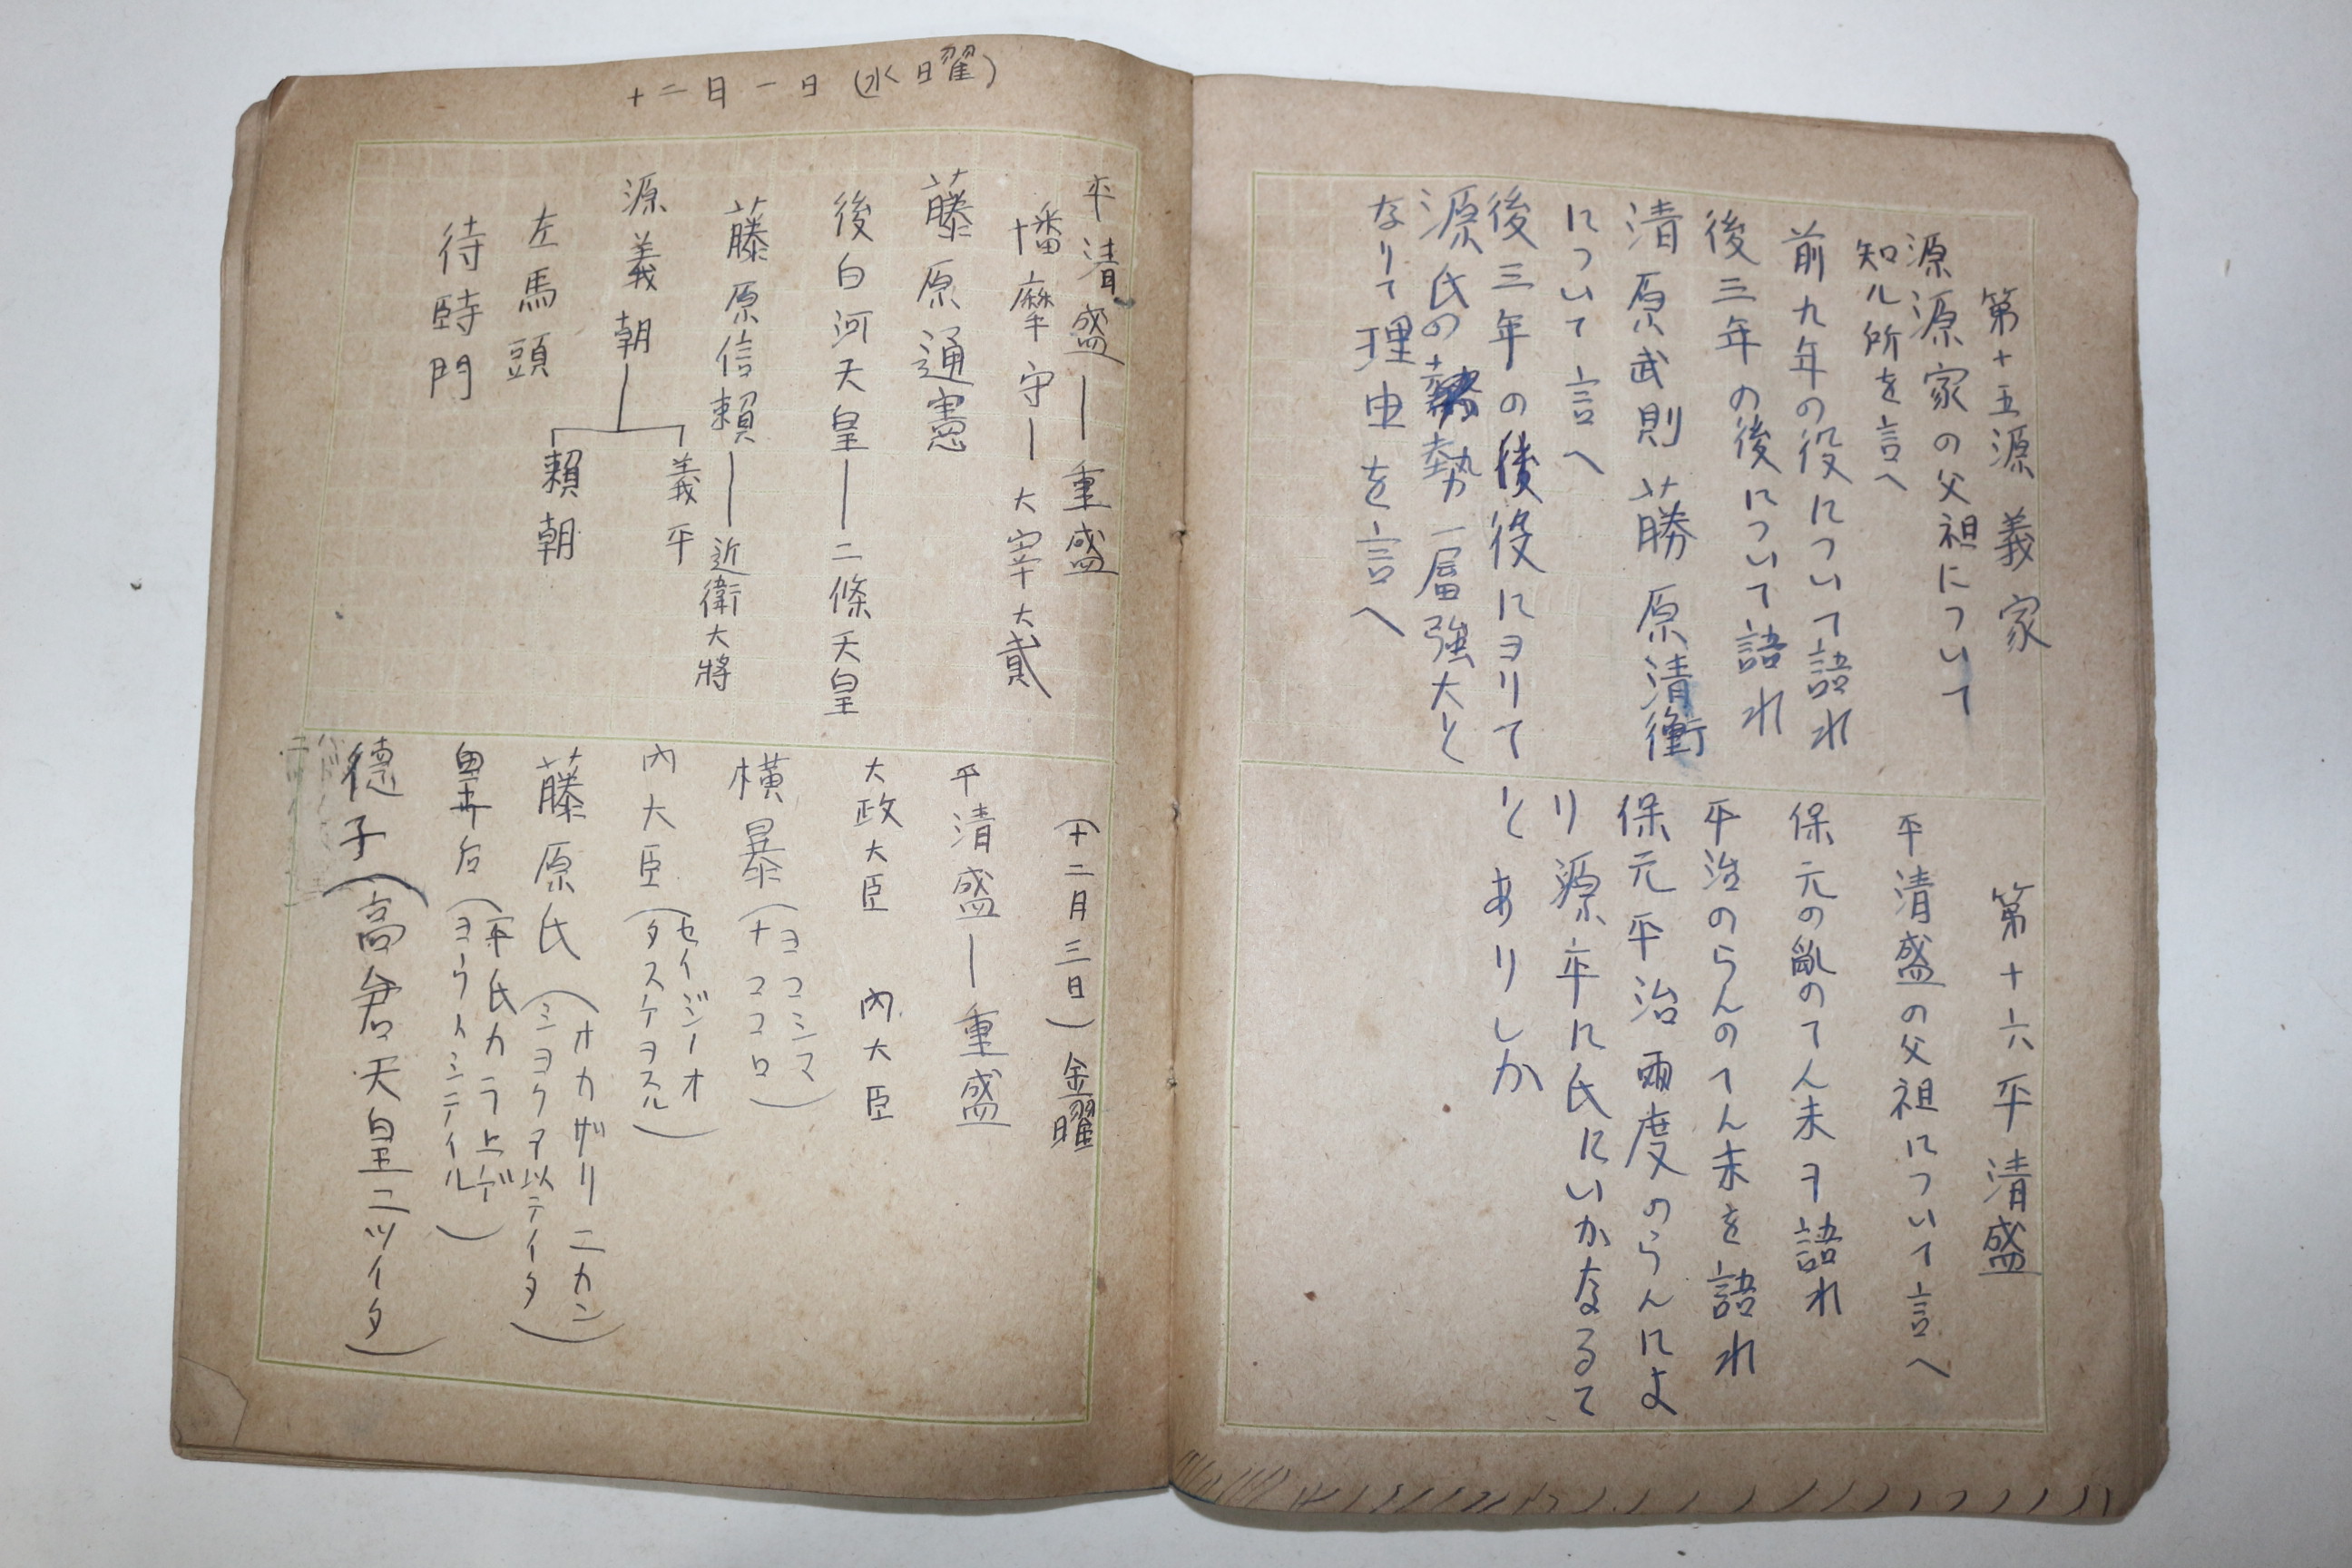 第十五源義家
源源家の父祖について
知ル所を言へ
前九年の役について語れ
後三年の後について語れ
清原武則藤原清衡
について言へ
後三年の後役にヨリて
源氏の勢一層強大と
なりて理由を言へ
第十六平清盛
平清盛の父祖について言へ
保元の亂のてん末ヲ語れ
平治のらんのてん末を語れ
保元平治兩度のらんによ
り源平に氏にいかなるて
とありしか
十二日一日(水曜)
平清盛―重盛
播摩守―大宰大貳
藤原通憲
後白河天皇―二條天皇
藤原信賴―近衛大將
源義朝
義平
賴朝
左馬頭
待時門
(十二月三日)金曜
平清盛―重盛
大政大臣 內大臣
橫暴(ヨコシマ
ナココロ)
內大臣(セイジーオ
タスケヲスル)
藤原氏(オカザリニカン
ミヨクヲ以テイタ)
皇后(平氏カラ上デ
ヨウスミテイル)
德子(高倉天皇ニツイタ)